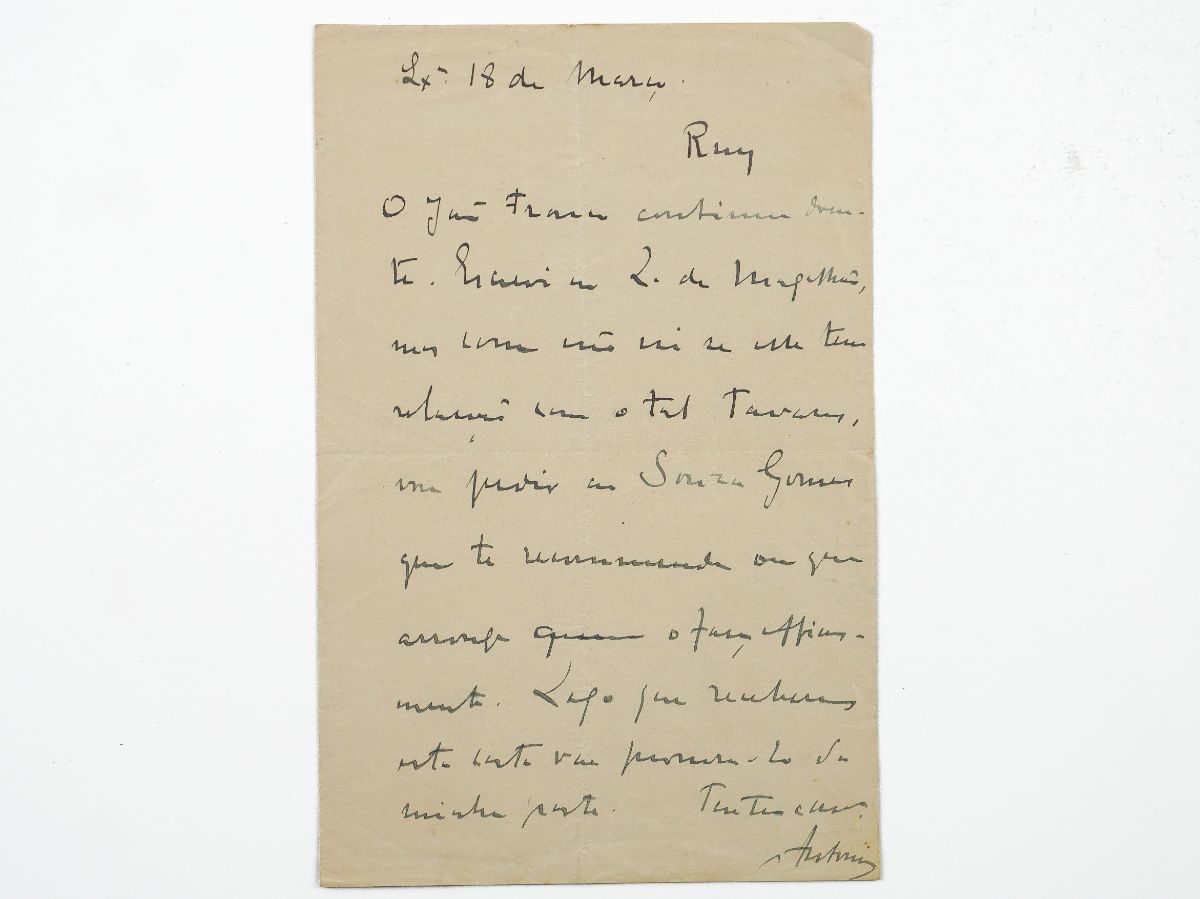 Lxª 18 de Março.
Ruy
O João Franco continua doen-
te. Escrevi ao L. de Magalhães,
mas como não sei se este tem
relações com o tal Tavares,
vou pedir ao Souza Gomes
que te recommende ou que
arranje quem o faça efficaz-
mente. Logo que recebas
esta carta vae procura-lo da
minha parte.
Antonio